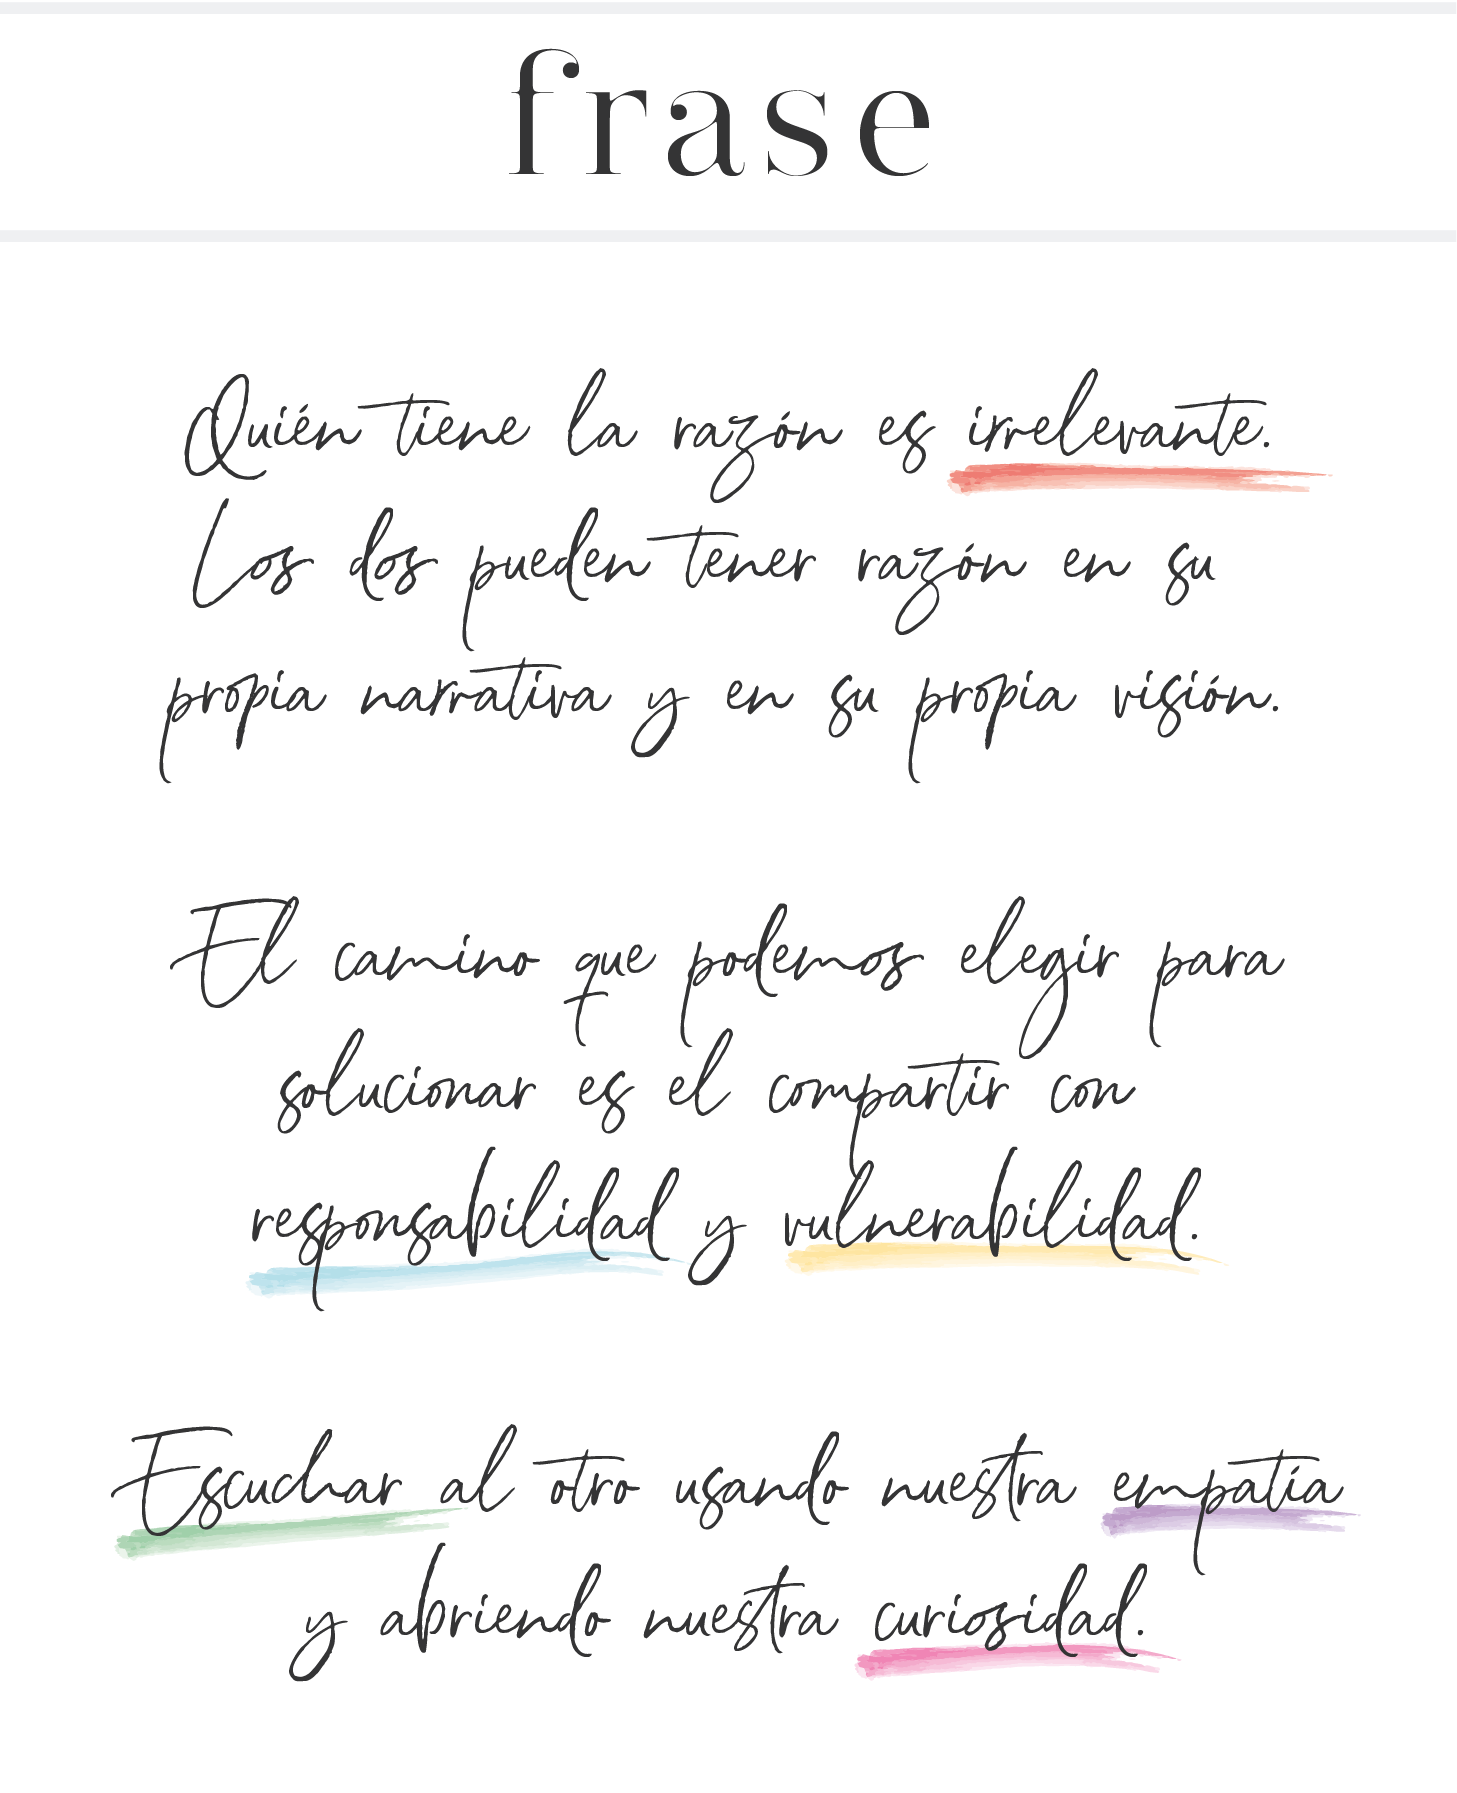 frase
Quién tiene la razón es irrelevante.
Los dos pueden tener razón en su
propia narrativa y en su propia visión.
El camino que podemos elegir para
solucionar es el compartir con
responsabilidad y vulnerabilidad.
Escuchar al otro usando nuestra empatía
y abriendo nuestra curiosidad.